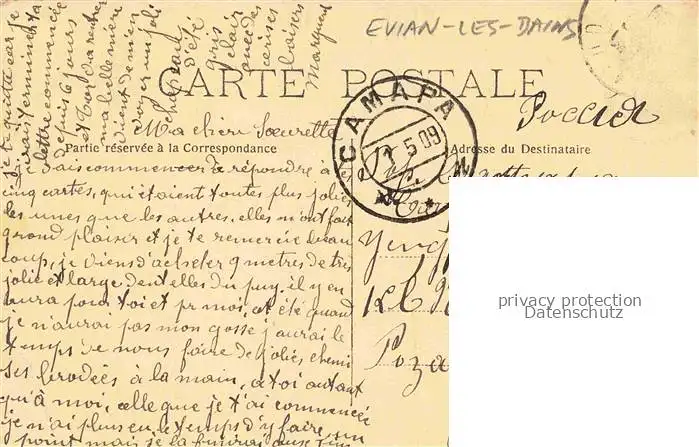 EVIAN-LES-BAINS
CARTE POSTALE
Partie réservée à la Correspondance
Adresse du Destinataire
САМАРА
5 09
Россия
Ma chère Sœurette
Je vais commencer à répondre à tes
cinq cartes, qui étaient toutes plus jolies
les unes que les autres, elles m'ont fait
grand plaisir et je te remercie beau
coup, je viens d'acheter 9 metres de très
jolie et large dentelles du puy, il y en
aura pour toi et pr moi, et été quand
je n'aurai pas mon gosse j'aurai le
temps de nous faire de jolies chemi
ses brodées à la main, à toi autant
qu'à moi, celle que je t'ai commencée
je n'ai plus eu le temps d'y faire un
point mais je la finirai
je te quitte car je
vais terminer ta
lettre commencée
depuis 6 jours
ma belle mère
vient de m'en
voyer un joli
chapeau
d'été
gris
clair
avec des
cerises
baisers
Marguerite
privacy protection
Datenschutz